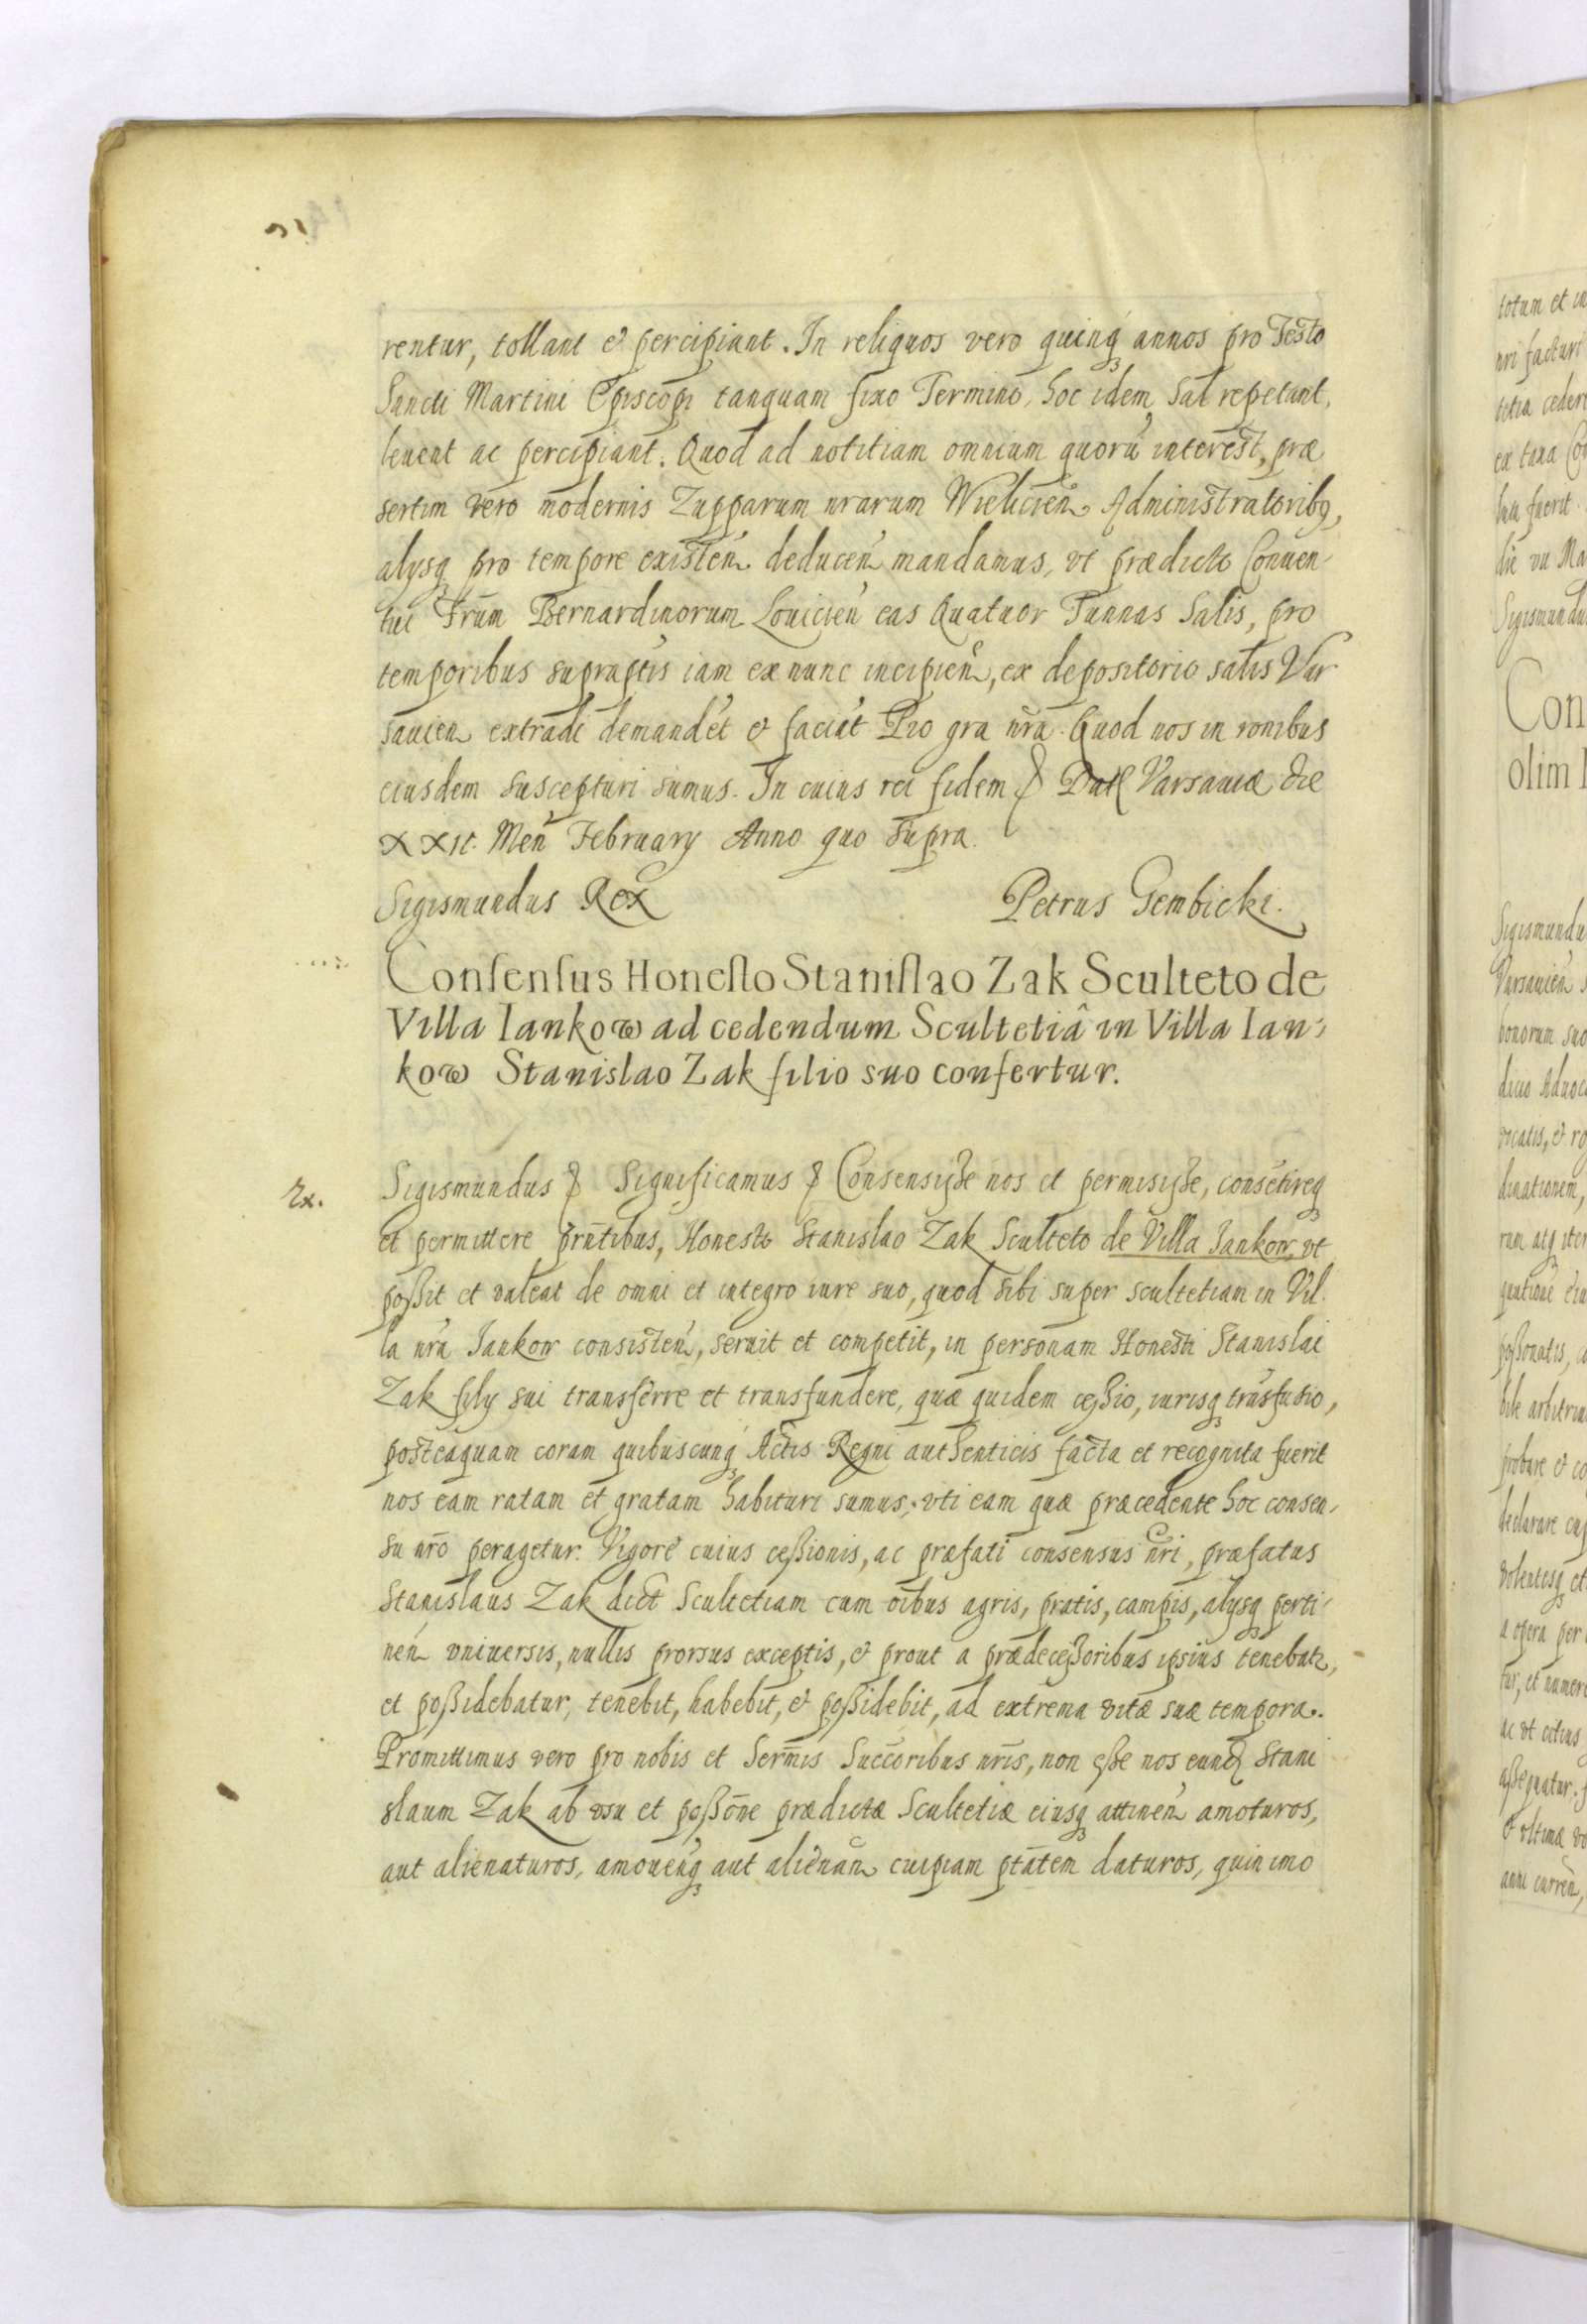 rentur, tollant et percipiant. In reliquos vero quinq́ annos pro Festo
Sancti Martini Episcopi tanquam fixo Termino, hoc idem Sal repetant,
leuent ac percipiant. Quod ad notitiam omnium quorũ interest, præ
sertim vero modernis Zupparum nrarum Wielicień Administratoribq,
alysq pro tempore existeń deduceń mandamus, vt prædicto Conuen-
tui Frũm Bernardinorum Louicień eas Quatuor Tunnas Salis, pro
temporibus supraptis iam ex nunc incipień, ex depositorio salis Var
sauień extradi demandét et faciát Pro gra nrã. Quod nos in ronibus
eiusdem suscepturi sumus. In cuius rei fidem & Dat Varsauiæ die
XXII. Meń February Anno quo supra.
Sigismundus Rex Petrus Gembicki.
Consensus Honesto Stanislao Zak Sculteto de
Villa Iankow ad cedendum Scultetiâ in Villa Ian-
kow Stanislao Zak filio suo confertur.
Rx. Sigismundus & Significamus & Consensiße nos et permisiße, consẽtireq
et permittere prñtibus, Honesto Stanislao Zak Sculteto de Villa Iankow, vt
poßit et valeat de omni et integro iure suo, quod sibi super scultetiam in Vil-
la nrá Iankow consisteń, seruit et competit, in personam Honesti Stanislai
Zak fily sui transferre et transfundere, quæ quidem ceßio, iurisq trãsfusio,
posteaquam coram quibuscunq́ Actis Regni authenticis facta et recognita fuerit
nos eam ratam et gratam habituri sumus, vti eam quæ præcedente hoc consen-
su nrõ peragetur. Vigore cuius ceßionis, ac præfati consensus nrĩ, præfatus
Stanislaus Zak dict Scultetiam cum oĩbus agris, pratis, campis, alysq perti-
neń vniuersis, nullis prorsus exceptis, et prout a prædeceßoribus ipsius tenebatr,
et poßidebatur, tenebit, habebit, et poßidebit, ad extrema vitæ suæ tempora.
Promittimus vero pro nobis et Serm̃is Succoribus nrĩs, non eße nos eund Stani
slaum Zak ab vsu et poßõne prædictæ Scultetiæ eiusq attineń amoturos,
aut alienaturos, amoueńq aut alienań cuipiam ptãtem daturos, quin imo